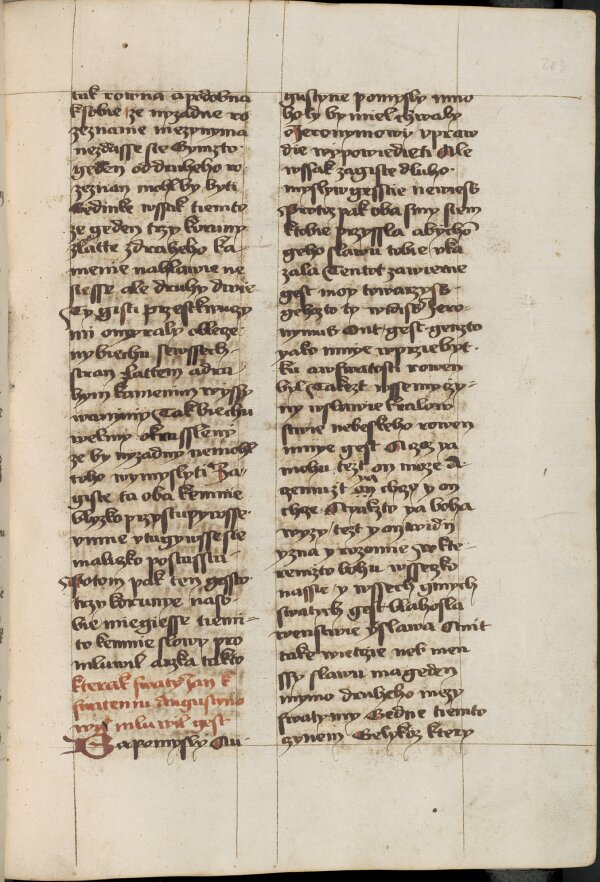 tak rowna a podobna
k sobie ze nyzadne ro
zeznanie mezynyma
nezdasse sie Gymzto
geden od druheho ro
zeznan mohl by byti
Gedinke wssak tiemto
ze geden trzy koruny
zlatte z draheho ka
menie na hlawie ne
siesse ale druhy dwie
Ty gisti przestkwuczy
mi
ny biechu se wssech
stran zlattem a dra
hym kamenim wyssy
wanymy Tak biechu
welmy okrassleny
ze by nyzadny nemohl
toho wymysliti Za
giste ta oba ke mnie
blyzko przystupywsse
v mne v tagywsse se
malizko postassta
Potom pak ten gessto
trzy korunye na so
bie miegiesse tiemi
to ke mnie slowy pro
mluwil arzka takto
kterak swaty Jan k
swatemu Augustino
wi mluwil gest
Ga pomysly Au
gustyne pomysly mno
ho ly by miel chwaly
o Jeronymowy vpraw
die wypowiedieti Ale
wssak zagiste dluho
myslyw gesstie newiess
Protoz pak oba smy siem
k tobie przyssla abycho
geho slawu tobie vka
zala Tentot zawierne
gest moy towarzyss
gehozto ty widiss Jero
nymus Ont gest genzto
yako mnye w prziebyt
ku a w swatosti rowen
byl Takezt w ssemy czy
ny w slawie kralow
stwie nebeskeho rowen
mnye gest Czoz ya
mohu tezt on moze A
gemuzt ya chczy y on
chcze A yakzto ya boha
wyzy tezt y on widi
y zna y rozomie W kte
remzto bohu wsseczko
nassie y wssech gynych
swatych gest blahosla
wenstwie y slawa Anit
take wietczie neb men
ssy slawu ma geden
mymo druheho mezy
swatymy Gedne tiemto
czynem Gelykoz ktery